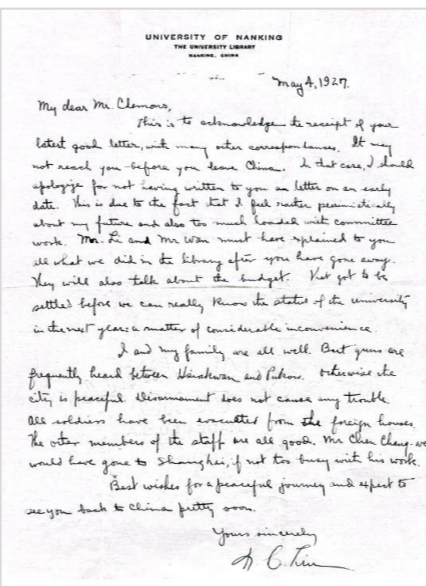 UNIVERSITY OF NANKING
THE UNIVERSITY LIBRARY
NANKING, CHINA
May 4, 1927.
My dear Mr. Clemons,
This is to acknowledge the receipt of your
latest good letter, with many other correspondences. It may
not reach you before you leave China. In that case, I should
apologize for not having written to you an letter on an early
date. This is due to the fact that I feel rather pessimistically
about my future and also too much loaded with committee
work. Mr. Li and Mr Wan must have explained to you
all what we did in the library after you have gone away.
They will also talk about the budget. got to be
settled before we can really know the status of the university
in the next year: a matter of considerable inconvenience.
I and my family are all well. But guns are
frequently heard between and Pukow. Otherwise the
city is peaceful. Disarmament does not cause any trouble.
All soldiers have been evacuated from the foreign houses.
The other members of the staff are all good. Mr Chen
would have gone to Shanghai, if not too busy with his work.
Best wishes for a peaceful journey and expect to
see you back to China pretty soon.
Yours sincerely